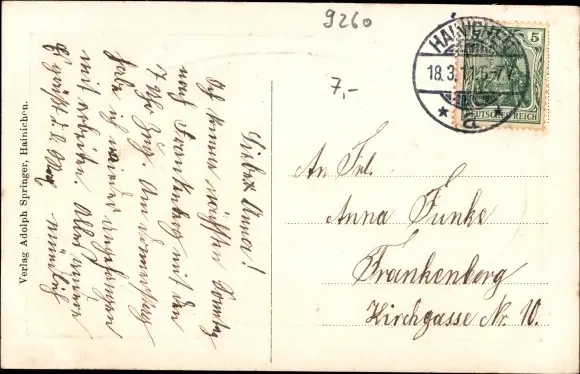 9260
7,-
HAINICHEN
18.3.11.6-7N.
* a
5
DEUTSCHES REICH
Verlag Adolph Springer, Hainichen.
Liebe Anna!
Ich komme nächsten Sonntag
nach Frankenberg mit den
7 Uhr Zug. Am Donnerstag
habe ich wieder angefangen
mit arbeiten. Alles andere
mündlich
Es grüßt d.
An Frl.
Anna Funke
Frankenberg
Kirchgasse Nr. 10.